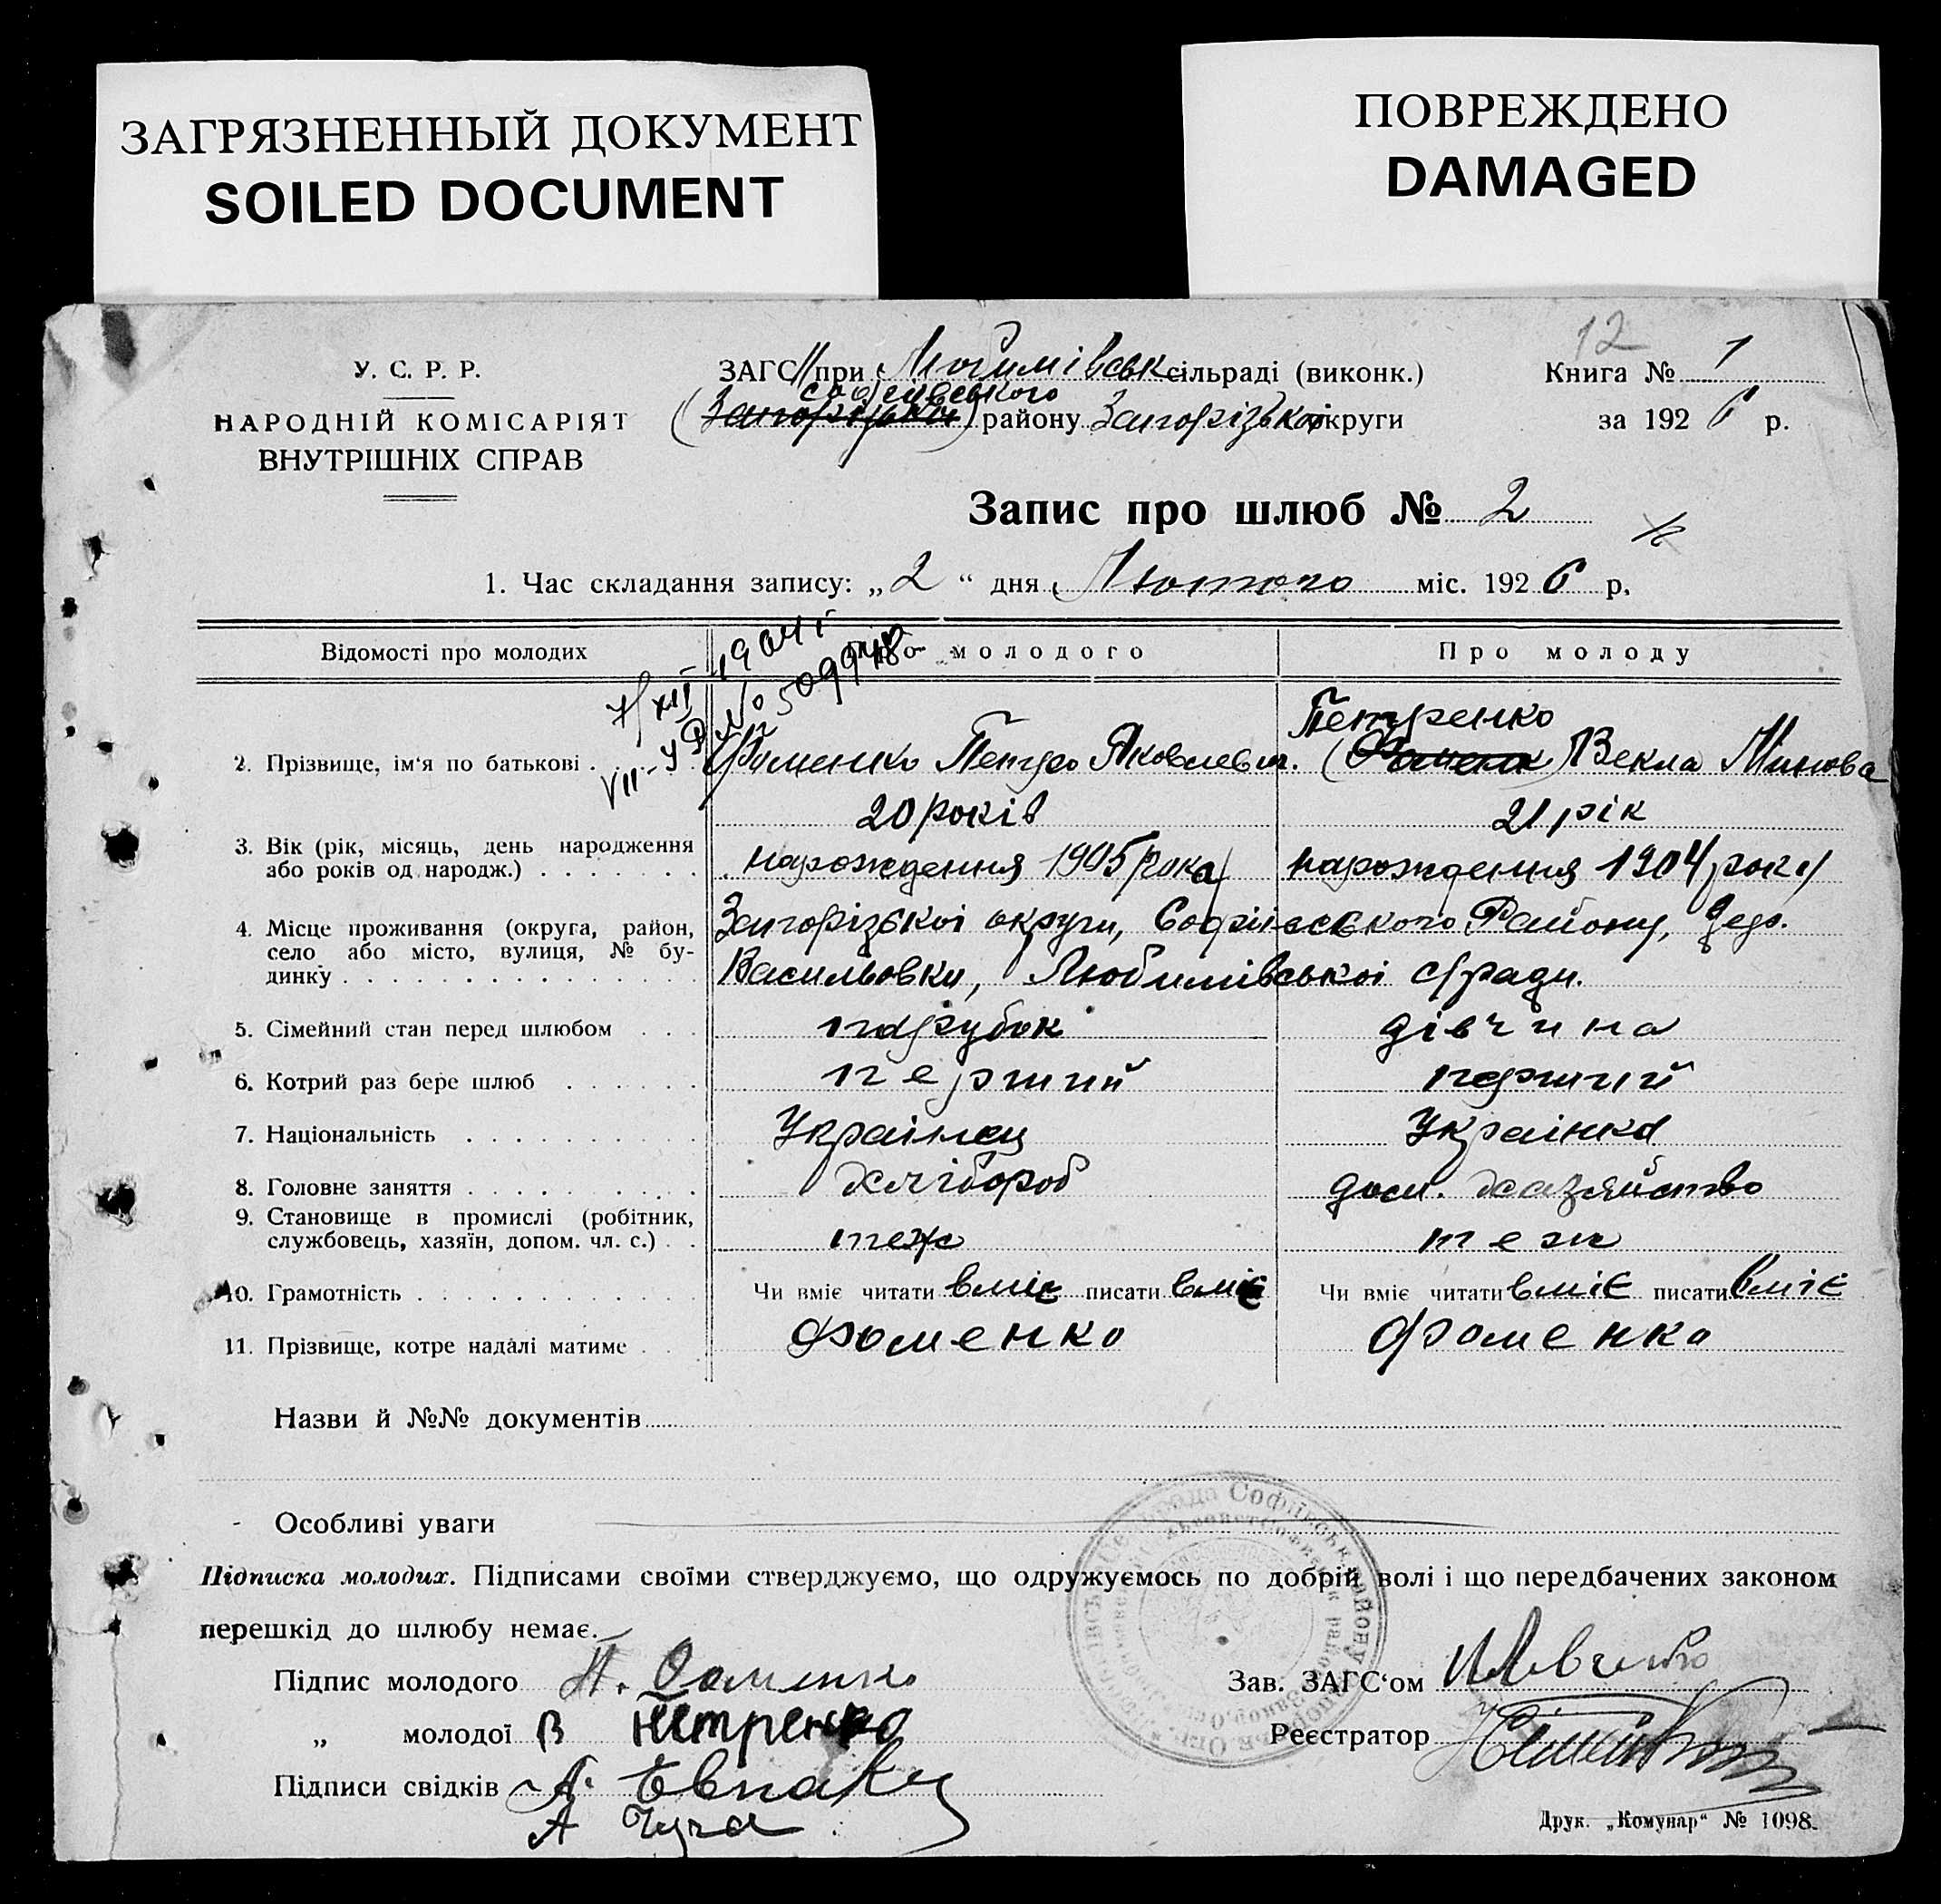 ЗАГРЯЗНЕННЫЙ ДОКУМЕНТ
SOILED DOCUMENT
ПОВРЕЖДЕНО
DAMAGED
12
У. С. Р. Р.
НАРОДНІЙ КОМІСАРІЯТ
ВНУТРІШНІХ СПРАВ
ЗАГС при Любимівськ сільраді (виконк.)
Софіївського
(Запорізький) району Запорізької округи
Книга № 1
за 1926 р.
Запис про шлюб № 2
1. Час складання запису: „2“ дня Лютого міс. 1926 р.
Відомості про молодих
Про молодого
Про молоду
7/XII 1904 г
VII-УР № 509948
2. Прізвище, ім'я по батькові
Фоменко Петро Яковлевич.
Петренко
(Фоменк) Векла Минова
3. Вік (рік, місяць, день народження
або років од народж.)
20 років
нарождения 1905 рока
21 рік
нарождения 1904 року
4. Місце проживання (округа, район,
село або місто, вулиця, № бу-
динку
Запорізскоі округи, Софиіевского Району, дер.
Васильовки, Любимівськоі с/ради.
5. Сімейний стан перед шлюбом парубок дівчина
6. Котрий раз бере шлюб перший перший
7. Національність Украінец Украінка
8. Головне заняття хлібороб дом. хазяйство
9. Становище в промислі (робітник,
службовець, хазяїн, допом. чл. с.) теж теж
10. Грамотність Чи вміє читати вміє писати вміє Чи вміє читати вміє писати вміє
11. Прізвище, котре надалі матиме Фоменко Фоменко
Назви й №№ документів
Особливі уваги
Підписка молодих. Підписами своїми стверджуємо, що одружуємось по добрій волі і що передбачених законом
перешкід до шлюбу немає.
Підпис молодого П. Фоменко
„ молодої В Петренко
Підписи свідків А.
А Чуча
Зав. ЗАГС'ом
Реєстратор
Друк. „Комунар“ № 1098.